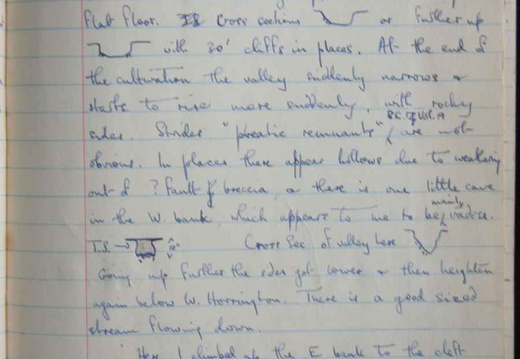 flat floor. Is Cross sections or further up
with 30' cliffs in places. At the end of
the cultivation the valley suddenly narrows &
starts to rise more suddenly, with rocky
sides. Strides "phreatic remnants" are not
obvious. In places there appear hollows due to weathering
out of ? Fault breccia, & there is one little cave
in the W. bank, which appears to me to be mainly vadose.
T.S. → 10' Cross Sec of valley here
Going up further the sides get lower & then heighten
again below W. Horrington. There is a good sized
stream flowing down.
Here I climbed up the E bank to the cleft